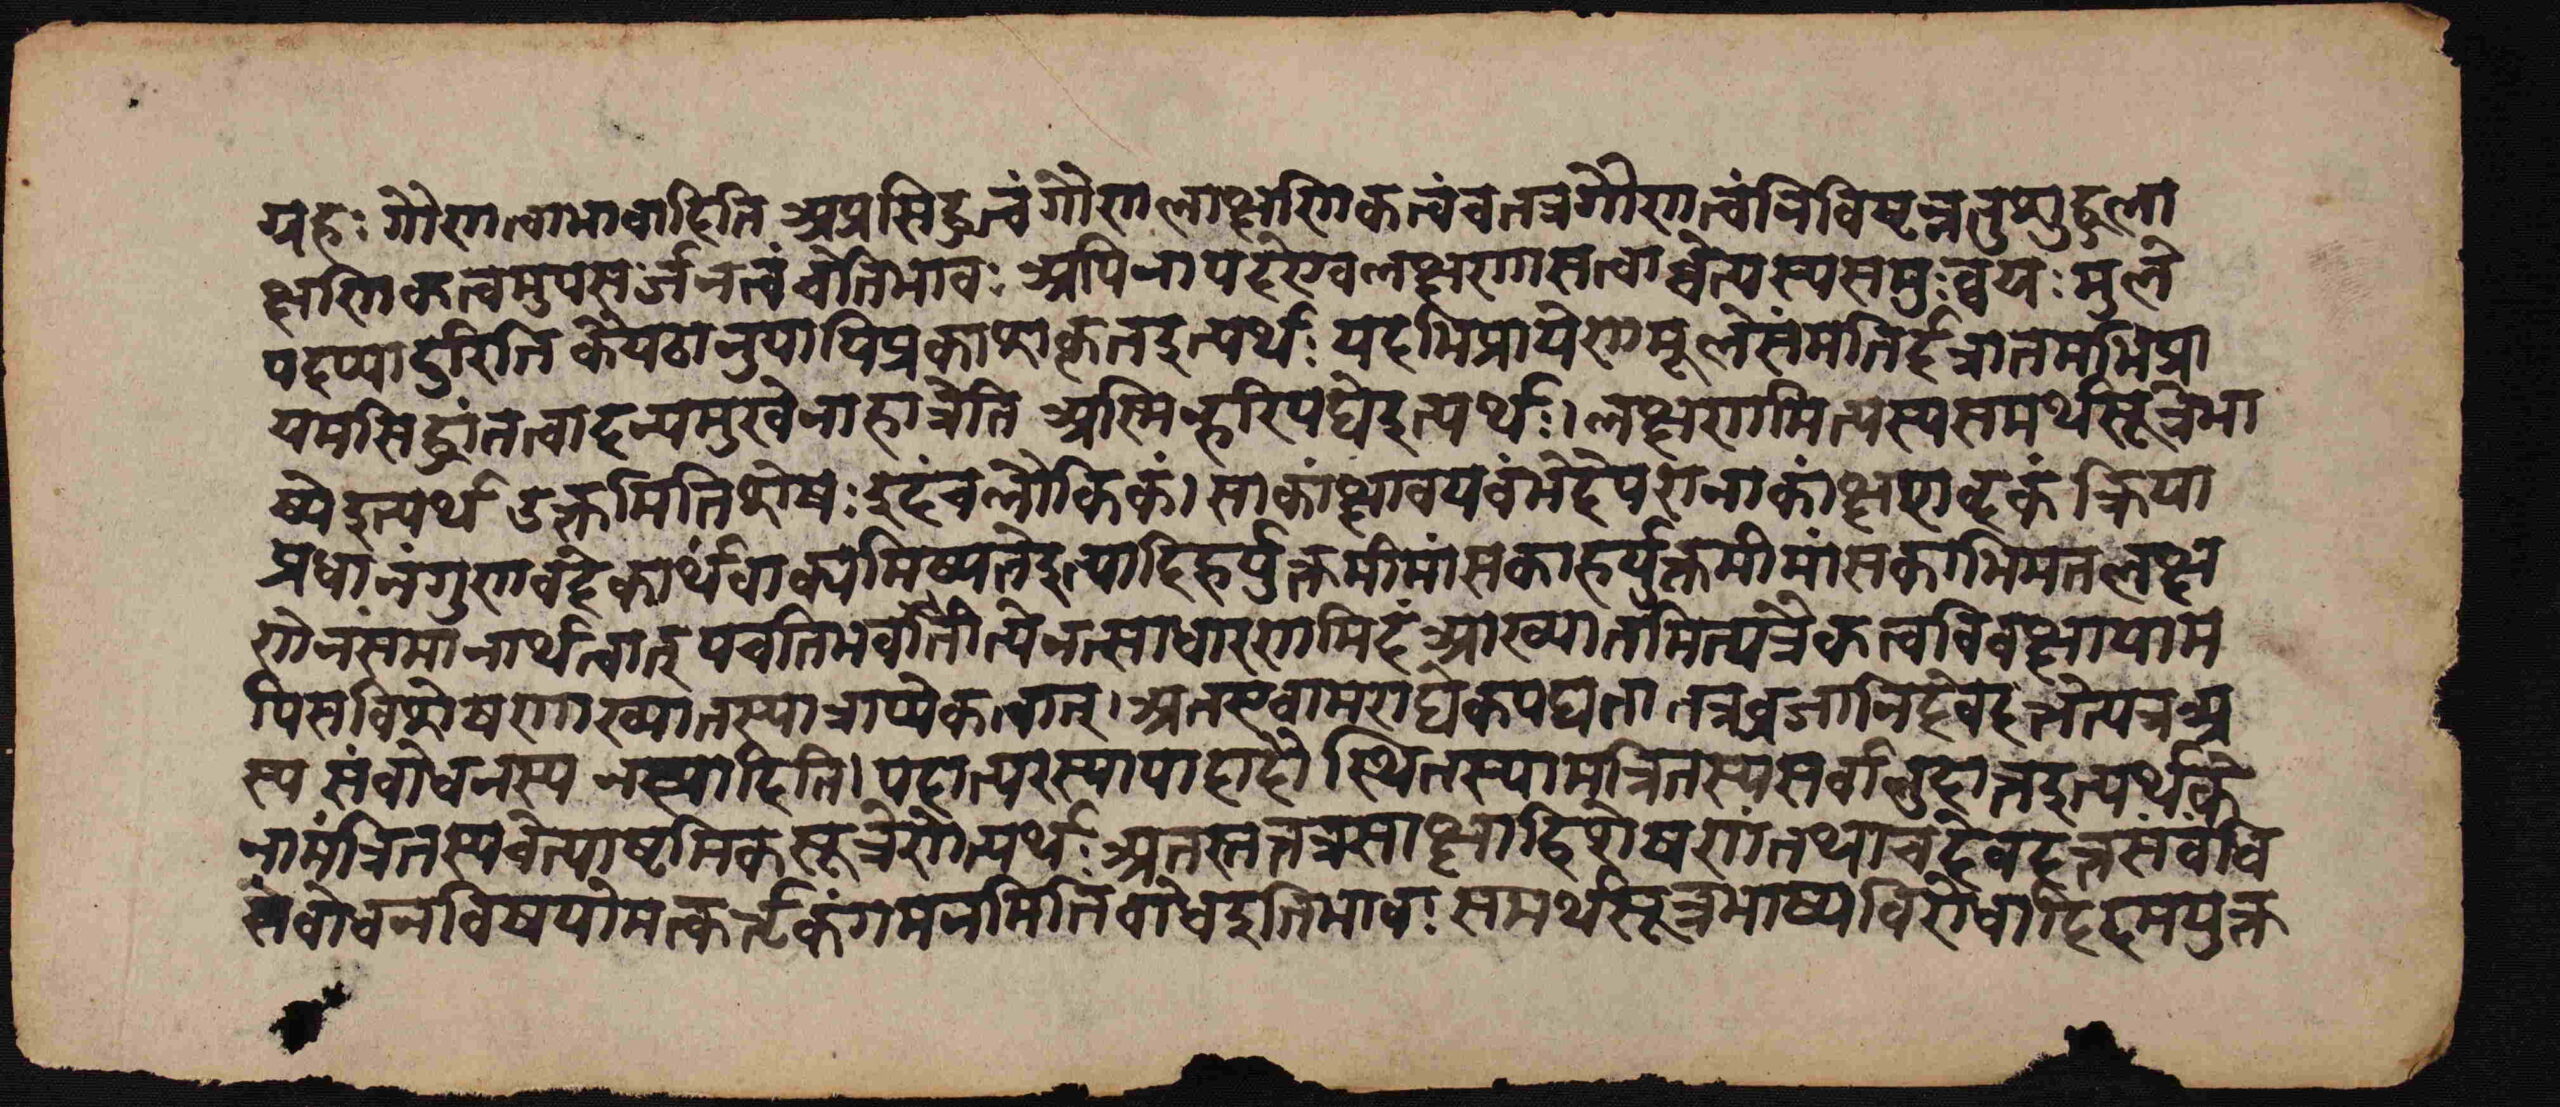 यद्दः गौणत्वाभावादिति अप्रसिद्धत्वं गौणलाक्षणिकत्वं च तत्र गौणत्वं निविष्टन्नतु शुद्धला
क्षणिकत्वमुपसर्जनत्वं चेतिभावः अपिनापदरेखलक्षणासत्वाच्चेत्यस्यसमुःच्चयः मुले
पदप्यादुरिति कैयटानुयायिप्रकाशकृतइत्यर्थः यदभिप्रायेणमूलेसंमतिर्दत्रातमभिप्रा
यमसिद्धांतत्वादन्यमुखेनाहात्रेति अस्मिन्हरिपद्येइत्यर्थः। लक्षणमित्यस्यसमर्थसूत्रेभा
ष्येइत्यर्थ उक्तमितिशेषः इदंचलौकिकं। साकांक्षावयवंभेदेपरानाकांक्षशब्दकं क्रिया
प्रधानंगुणवदेकार्थंवाक्यमिष्यतेइत्यादिहर्युक्तमीमांसकाहर्युक्तमीमांसकाभिमतलक्ष
णेनसमानार्थत्वात् पचतिभवतीत्येनत्साधारणमिदं आख्यातमित्यत्रैकत्वविवक्षायाम
पिसविशेषणाख्यातस्यात्राप्येकत्वात्। अतएवामराद्येकपद्यता तत्रव्रजानिदेवदत्तेत्यत्रअ
स्य संबोधनस्य नस्यादिति। पदात्परस्यापादादौ स्थितस्यामन्त्रितस्यसर्वानुदात्तइत्यर्थके
नामंत्रितस्यचेत्याष्टमिकसूत्रेणेत्यर्थः अतस्तत्तत्रसाक्षाद्विशेषणंतथाचदेवदत्तसंबंधि
संबोधनविषयोमत्कर्तृकंगमनमितिबोधइतिभावः समर्थसूत्रभाष्यविरोधादिदमयुक्त